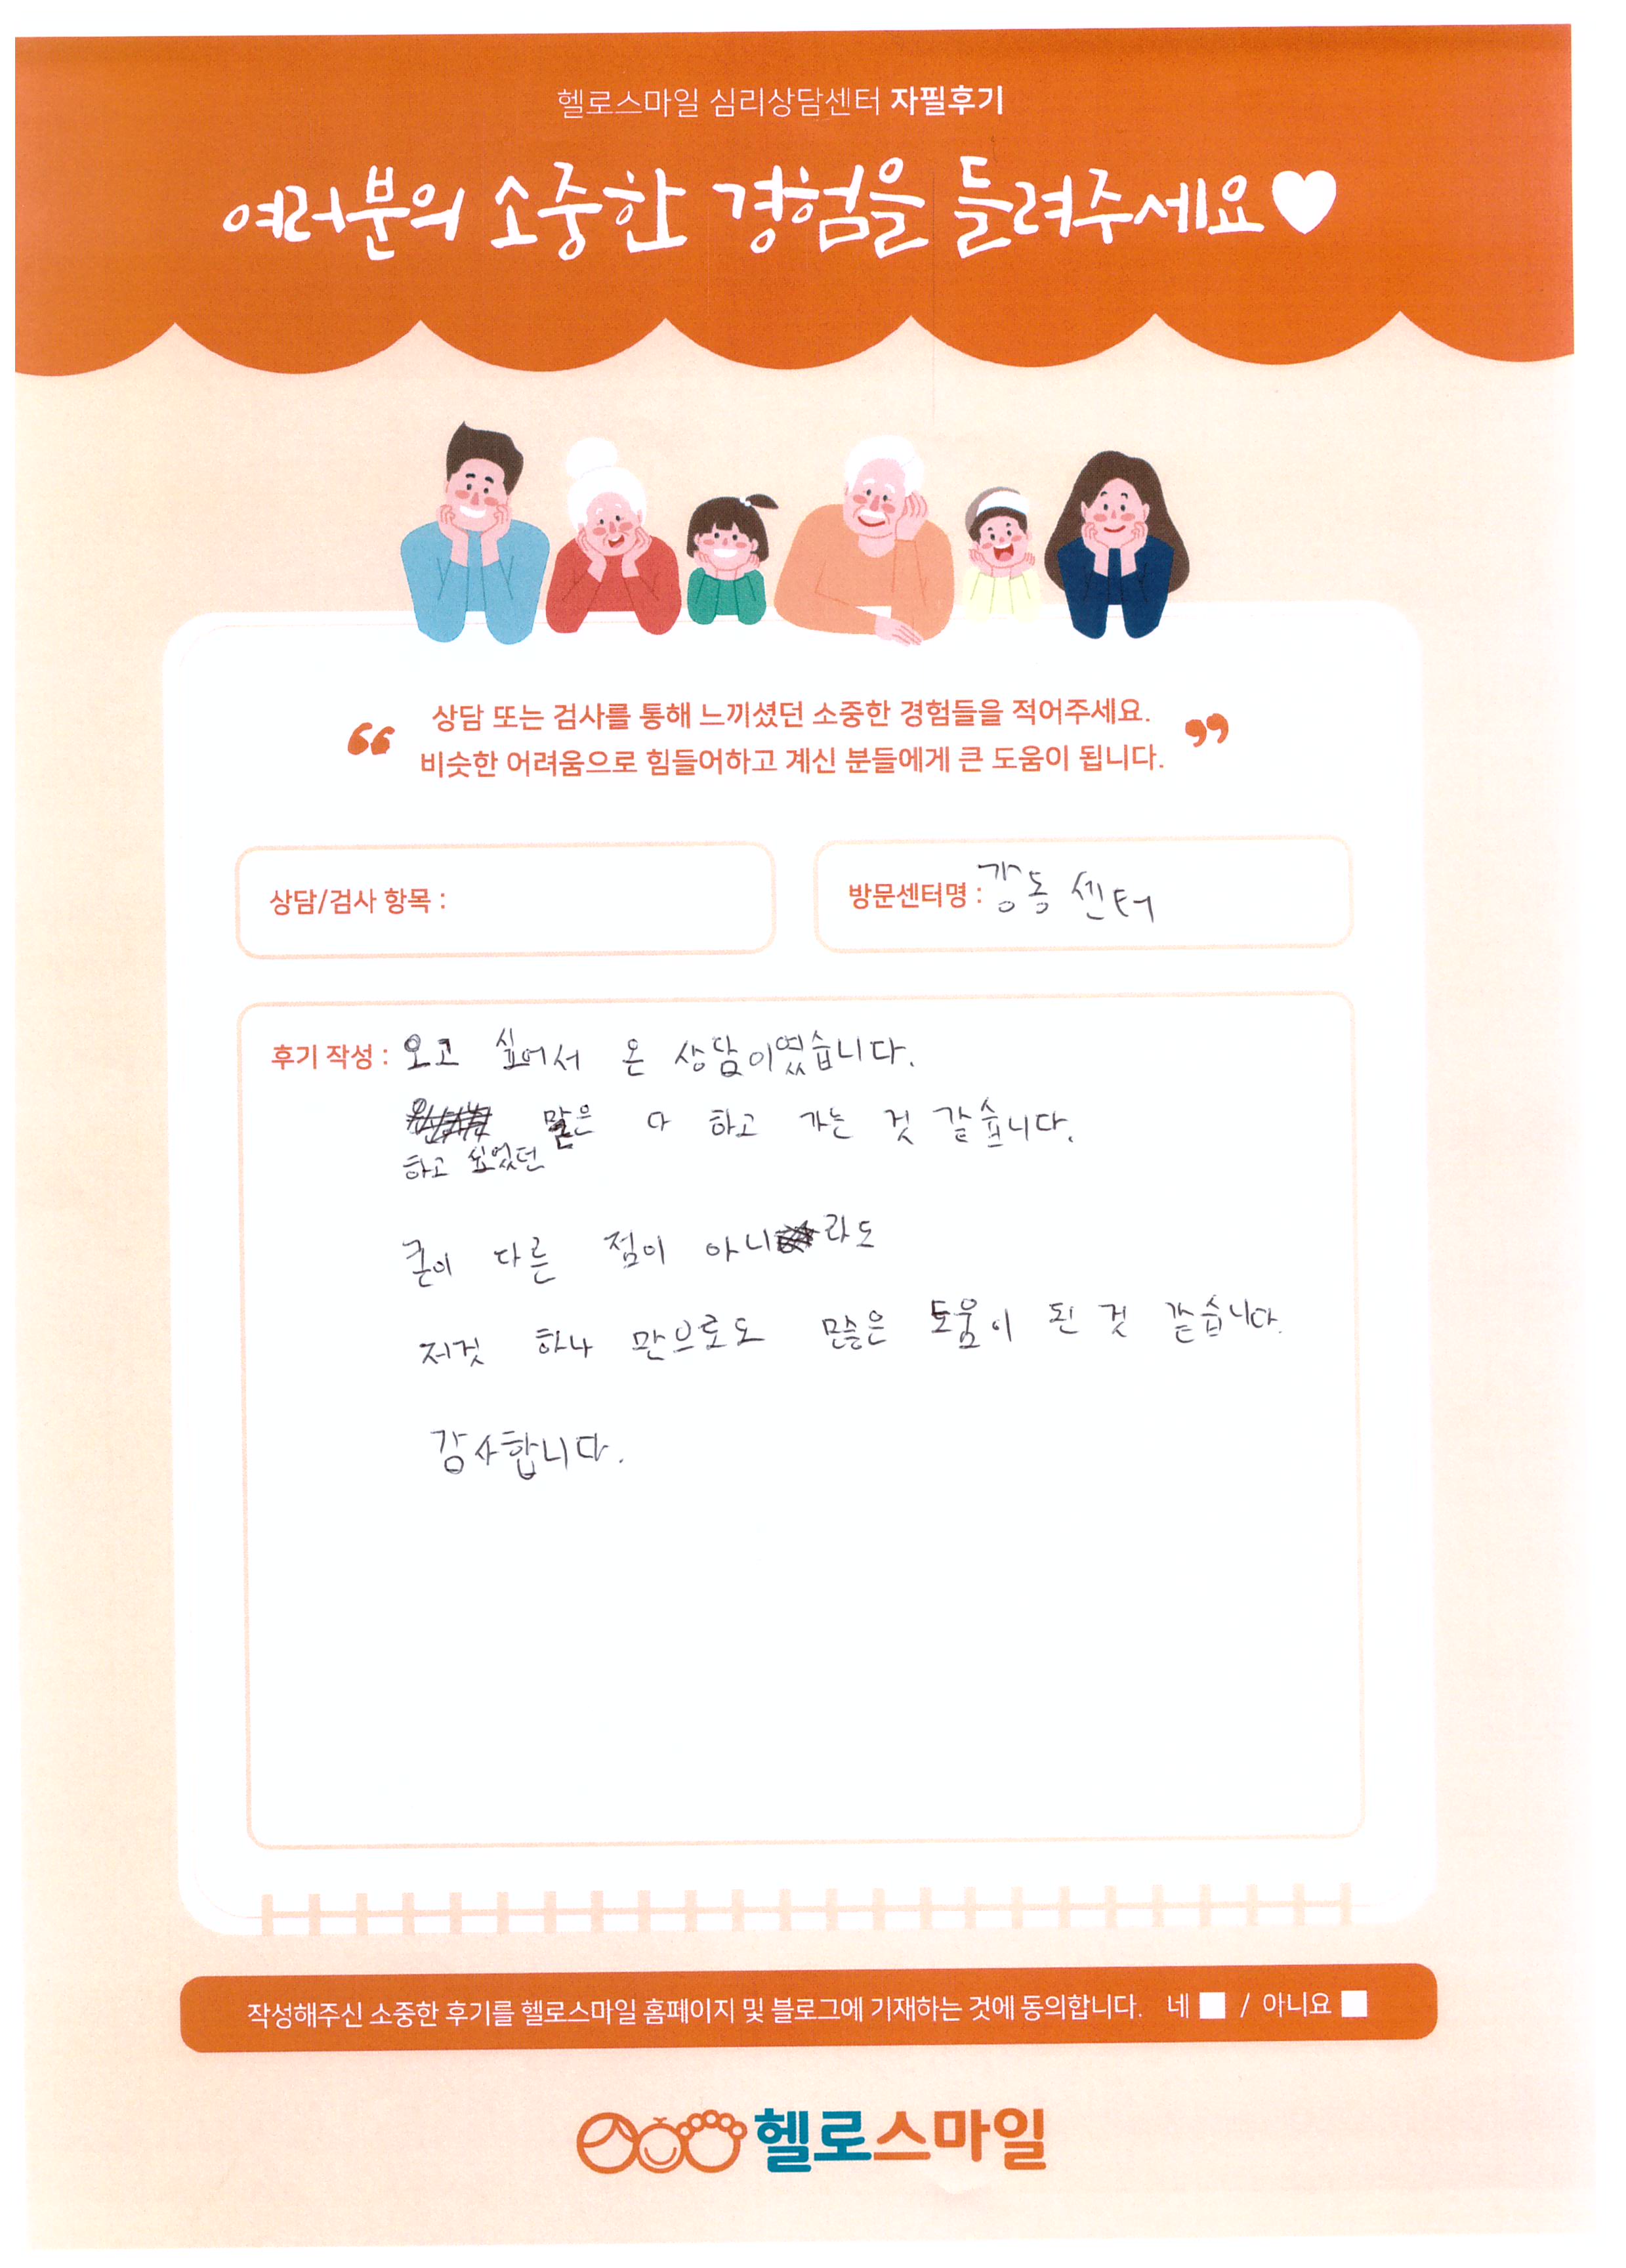 헬로스마일 심리상담센터 자필후기
여러분의 소중한 경험을 들려주세요♥
상담 또는 검사를 통해 느끼셨던 소중한 경험들을 적어주세요.
“ ”
비슷한 어려움으로 힘들어하고 계신 분들에게 큰 도움이 됩니다.
상담/검사 항목 :
방문센터명 : 강동 센터
후기 작성 : 오고 싶어서 온 상담이였습니다.
말은 다 하고 가는 것 같습니다.
하고 싶었던
굳이 다른 점이 아니라도
저것 하나 만으로도 많은 도움이 된 것 같습니다.
감사합니다.
작성해주신 소중한 후기를 헬로스마일 홈페이지 및 블로그에 기재하는 것에 동의합니다. 네 / 아니요
헬로스마일